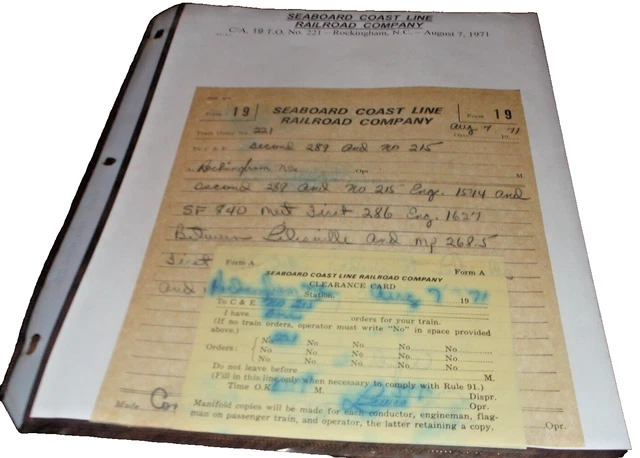 SEABOARD COAST LINE
RAILROAD COMPANY
C.A. 19 T.O. No. 221 – Rockingham, N.C. – August 7, 1971
Form 19
SEABOARD COAST LINE
RAILROAD COMPANY
Form 19
Train Order No. 221
Aug 7 1971
To C & E Second 289 and No 215
Rockingham NC Opr. M
Second 289 and No 215 Eng. 1544 and
SF 940 meet First 286 Eng. 1627
Between Lilesville and MP 268.5
First
and
Form A
Form A
SEABOARD COAST LINE RAILROAD COMPANY
CLEARANCE CARD
Rockingham Aug 7 1971
Station,
To C & E No 215
I have one orders for your train.
(If no train orders, operator must write "No" in space provided
above.)
Orders:
No 221 No No No
No No No No
No No No No
Do not leave before M.
(Fill in this line only when necessary to comply with Rule 91.)
Time O.K. M. Dispr.
Lewis Opr.
Manifold copies will be made for each conductor, engineman, flag-
man on passenger train, and operator, the latter retaining a copy.
Made Com
Opr.